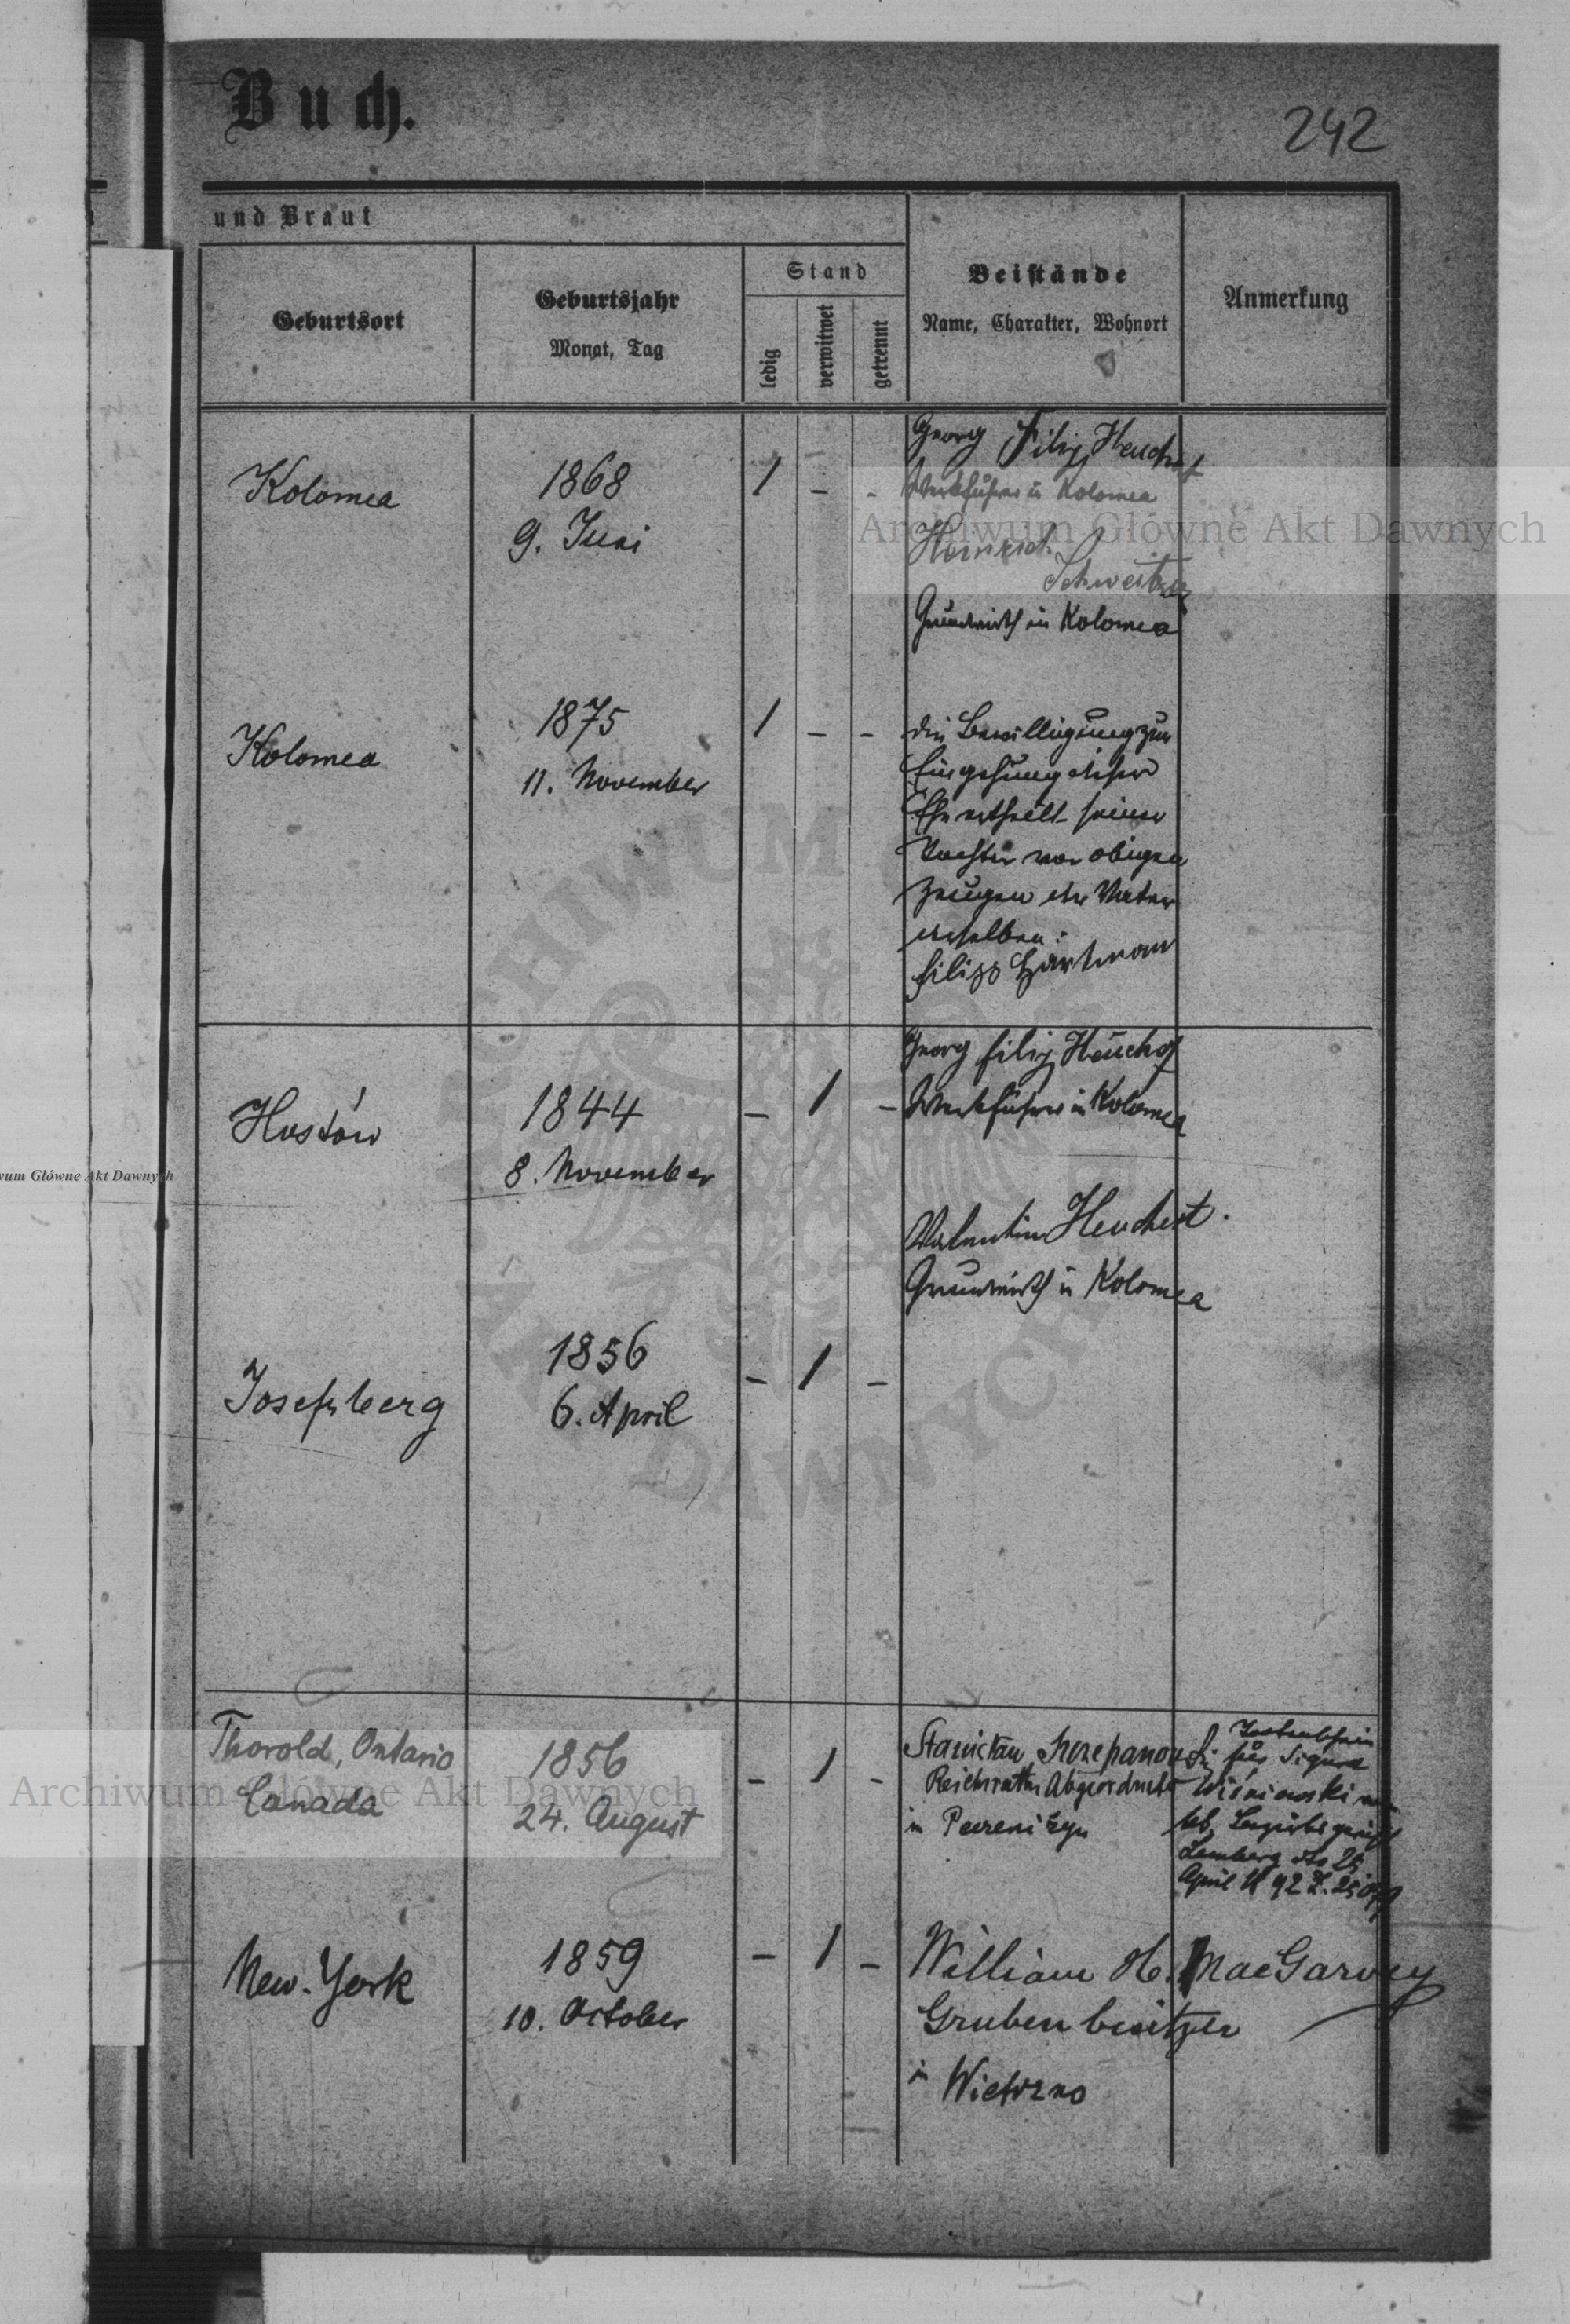 Buch.
242
und Braut
Geburtsort
Geburtsjahr
Monat, Tag
Stand
ledig
verwitwet
getrennt
Beistände
Name, Charakter, Wohnort
Anmerkung
Kolomea
1868
9. Juni
1 - -
Georg Filip
Werkführer in Kolomea
Heinrich
Schweitzer
Grundwirth in Kolomea
Kolomea
1875
11. November
1 - -
die Bewilligung zur
Eingehung dieser
Ehe ertheilt seiner
Tochter vor obigen
Zeugen der Vater
derselben:
Filipp Hartman
1844
8. November
- 1 -
Georg Filip
Werkführer in Kolomea
Valentin Heuchert.
Grundwirth in Kolomea
Josefsberg
1856
6. April
- 1 -
Thorold, Ontario
Canada
1856
24. August
- 1 -
Stanisław Szczepanowski
Reichsraths Abgeordneter
in Peczeniżyn
für Sigurd
Wiśniowski
Lemberg dto 25
April
New-York
1859
10. October
- 1 -
William H. MacGarvey
Grubenbesitzer
in Wietrzno
Archiwum Główne Akt Dawnych
Archiwum Główne Akt Dawnych
wum Główne Akt Dawnych
ARCHIWUM
AKT DAWNYCH